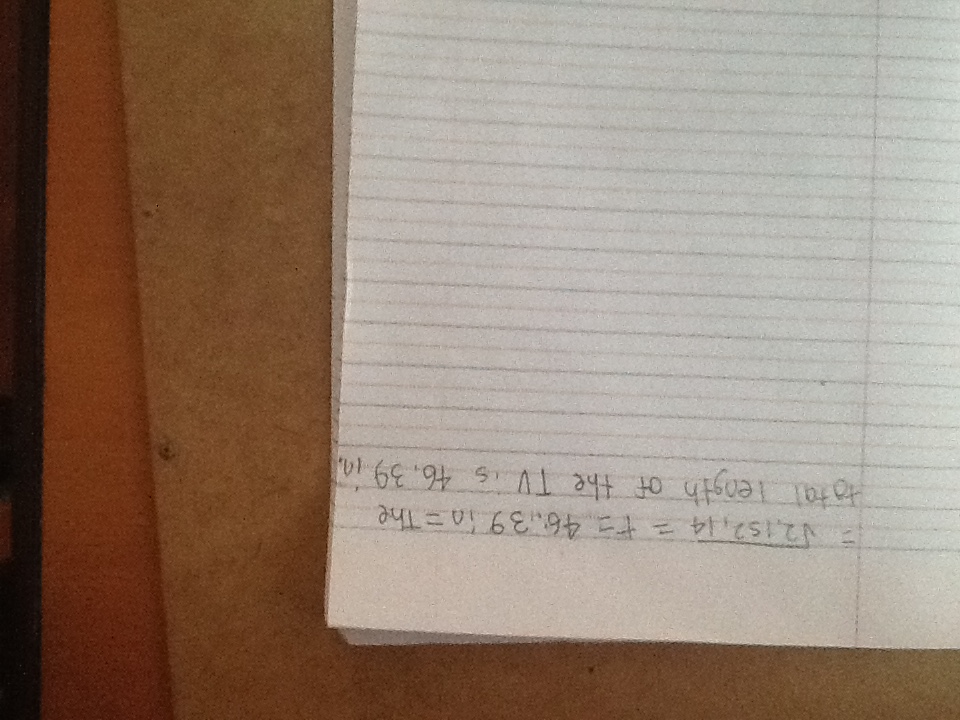 = √2,152.14 = t = 46.39 in = The
total length of the TV is 46.39 in.